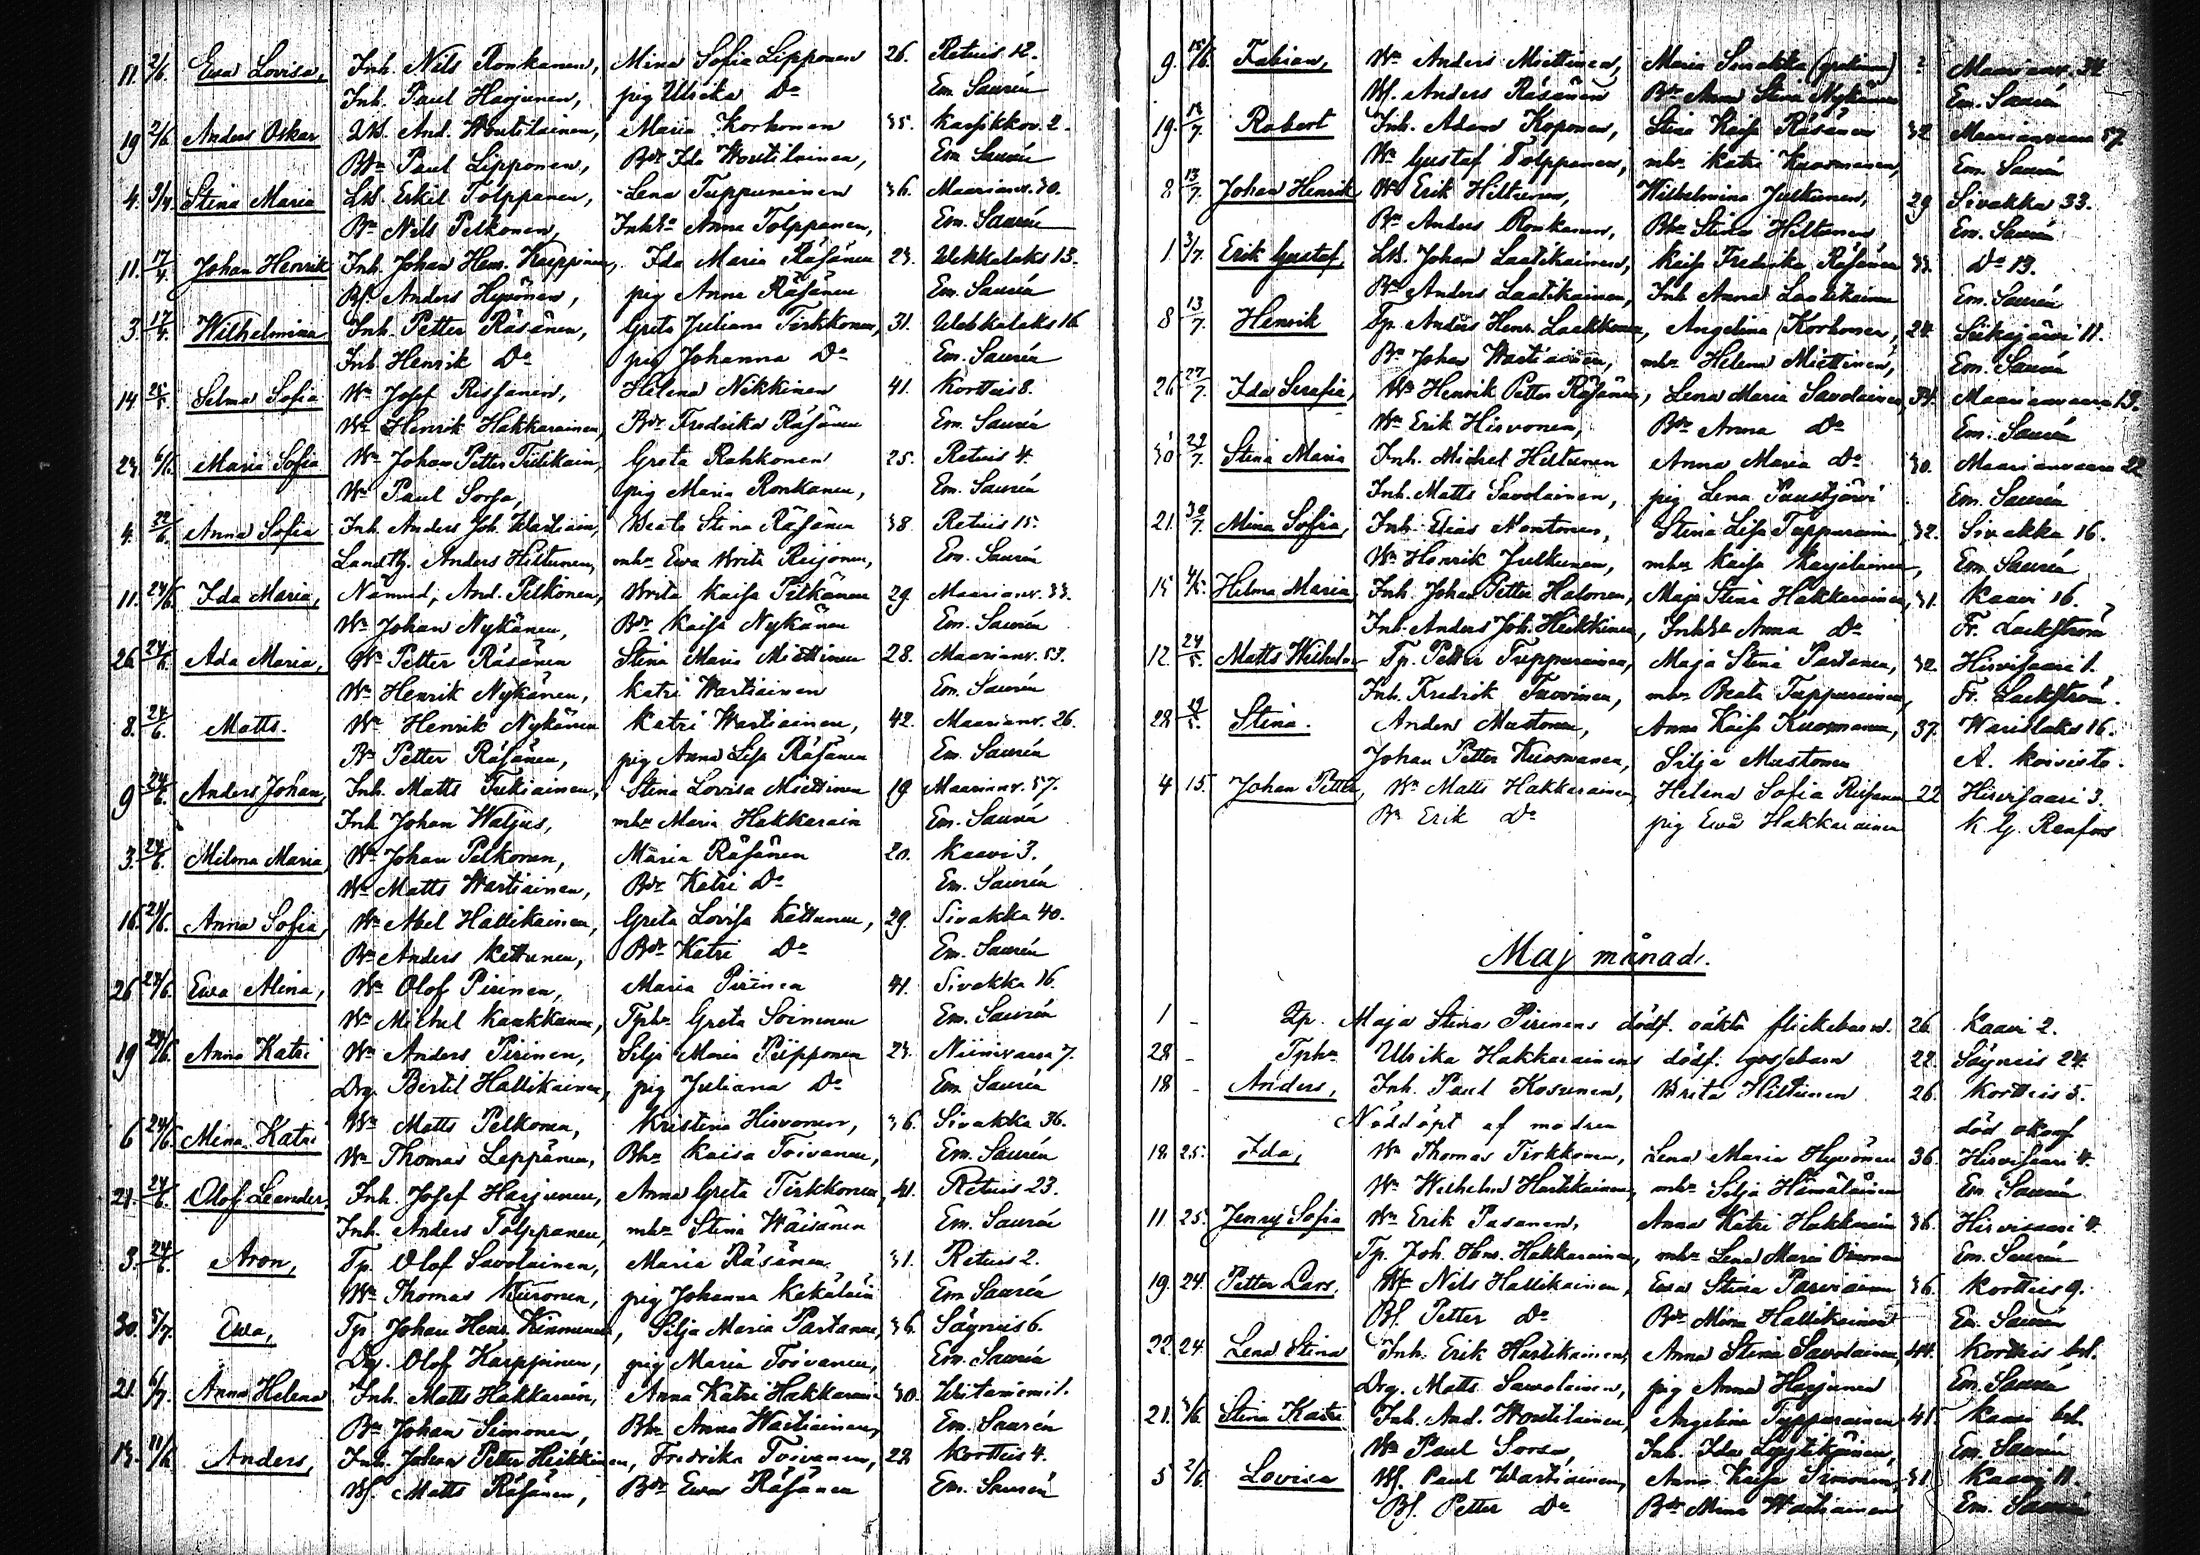 11. 2/6. Ewa Lovisa, Inh. Nils Ronkanen, Mina Sofia Lipponen 26. Retuis 12.
Inh. Paul Harjunen, pig Ulrika Do Em. Saurén
19 2/6. Anders Oskar Lks. And. Woutilainen, Maria Korhonen 35. Karsikkov. 2.
Bdn Paul Lipponen, Bdr Ida Woutilainen, Em. Saurén
4. Stina Maria Lks. Erkil Tolppanen, Lena Tuppurainen 36. Maarianv. 30.
Bn Nils Pelkonen, Inhha Anna Tolppanen, Em. Saurén
11. 17/4. Johan Henrik Inh. Johan Henr. Karppinen, Ida Maria Räsänen 23. Wehkalaks 13.
Bf. Anders Hyvönen, pig Anna Räsänen Em. Saurén
3. 17/4. Wilhelmina Inh. Petter Räsänen, Greta Juliana Tirkkonen, 31. Wehkalaks 16
Inh Henrik Do pig Johanna Do Em. Saurén
14 25/5. Selma Sofia Wn Josef Rissanen, Helena Nikkinen 41. Kortteis 8.
Wn Henrik Hakkarainen, Bdr Fredrika Räsänen Em. Saurén
23 6/6. Maria Sofia Wn Johan Petter Tiilikain, Greta Rahkonen 25. Retuis 4.
Wn Paul Sorsa, pig Maria Ronkanen, Em. Saurén
4. 22/6. Anna Sofia Inh. Anders Joh. Wartiain, Beata Stina Räsänen 38. Retuis 15.
Landtbr. Anders Hiltunen, mhr Ewa Brita Reijonen, Em. Saurén
11. 24/6. Ida Maria, Nämnd. And. Pelkonen, Brita Kaisa Pitkänen 29. Maarianv. 33.
Wn Johan Nykänen, Bdr Kaisa Nykänen Em. Saurén
26 24/6. Ada Maria, Wn Petter Räsänen Stina Maria Miettinen 28. Maarianv. 53.
Wn Henrik Nykänen, Katri Wartiainen Em. Saurén
8. 24/6. Matts. Wn Henrik Nykänen Katri Wartiainen, 42. Maarianv. 26.
Bn Petter Räsänen, pig Anna Lisa Räsänen Em. Saurén
9 24/6. Anders Johan, Inh. Matts Tukiainen, Stina Lovisa Miettinen 19 Maarianv. 57.
Inh Johan Waljus, mhr Maria Hakkarain Em. Saurén
3. 24/6. Milma Maria Wn Johan Pelkonen, Maria Räsänen 20. Kaavi 3.
Wn Matts Wartiainen, Bdr Katri Do Em. Saurén
16. 24/6. Anna Sofia, Wn Abel Hallikainen, Greta Lovisa Kettunen, 29. Sivakka 40.
Bn Anders Kettunen, Bdr Katri Do Em. Saurén
26 24/6. Ewa Alina, Wn Olof Pirinen, Maria Pirinen 41. Sivakka 16.
Wn Michel Kaukkanen, Tphr Greta Soininen Em. Saurén
19 24/6. Anna Katri Wn Anders Pirinen, Silja Maria Piipponen 23. Niinivaara 7.
Drg. Bertil Hallikainen, pig Juliana Do Em. Saurén
6 24/6. Mina Katri Wn Matts Pelkonen, Kristina Hirvonen, 36. Sivakka 36.
Wn Thomas Leppänen, Bhr Kaisa Toivanen, Em. Saurén
21. 24/6. Olof Leander, Inh. Josef Harjunen, Anna Greta Tirkkonen, 41. Retuis 23.
Inh. Anders Tolppanen, mhr Stina Wäisänen Em. Saurén
3. 24/6. Aron, Tp. Olof Savolainen, Maria Räsänen 31. Retuis 2.
Wn Thomas Kuronen, pig Johanna Kekäläin Em. Saurén
30. 5/7. Ewa, Tp. Johan Henr. Kinnunen, Silja Maria Partanen, 36. Säyneis 6.
Drg. Olof Karppinen, pig Maria Toivanen, Em. Saurén
21. 6/7. Anna Helena Inh. Matts Hakkarain, Anna Katri Hakkarain 30. Wiitaniemi 1.
Bn Johan Simonen, Bhr Anna Wartiainen, Em. Saurén
13. 11/6. Anders, Inh. Johan Petter Heikkinen, Fredrika Toivanen, 22 Kortteis 4.
Bf. Matts Räsänen, Bdr Ewa Räsänen Em. Saurén
9 15/6. Fabian, Wn Anders Miettinen, Maria Surakka ? Maarianv. 34
Bf. Anders Räsänen Bdr Anna Stina Nykänen Em. Saurén
19. Robert Inh. Adam Koponen, Stina Kaisa Räsänen 32 Maarianvaara 57.
Wn Gustaf Tolppanen, mhr Katri Kuosmanen, Em. Saurén
8 13/7. Johan Henrik Wn Erik Hiltunen, Wilhelmina Julkunen, 29 Sivakka 33.
Bn Anders Ronkanen, Bhr Stina Hiltunen Em. Saurén
1. 3/7. Erik Gustaf, Lks. Johan Laatikainen, Kaisa Fredrika Räsänen 33. Do 13.
Bn Anders Laatikainen, Inh Anna Laatikainen Em. Saurén
8 13/7. Henrik Tp. Anders Henr. Laakkonen, Angelina Korhonen, 24. Siikajärvi 11.
Bn Johan Wartiainen, mhr Helena Miettinen, Em. Saurén
26 27/7. Ida Serafia, Wn Henrik Petter Räsänen, Lena Maria Savolainen, 34. Maarianvaara 19.
Wn Erik Hirvonen, Bdr Anna Do Em. Saurén
30 29/7. Stina Maria Inh. Michel Hiltunen Anna Maria Do 30. Maarianvaara 22
Inh. Matts Savolainen, pig Lena Paustjärvi Em. Saurén
21. 30/7. Mina Sofia, Inh. Elias Montonen, Stina Lisa Tuppurainen, 32. Sivakka 16.
Wn Henrik Julkunen, mhr Kaisa Karjalainen, Em. Saurén
15 4/5. Hilma Maria Inh. Johan Petter Halonen, Maja Stina Hakkarainen, 31. Kaavi 16.
Inh. Anders Joh. Heikkinen, Inhha Anna Do Fr. Lackström
12. 24/5. Matts Wilhelm Tp. Petter Tuppurainen, Maja Stina Partanen, 32. Hirvisaari 1.
Inh. Fredrik Turvinen, mhr Beata Tuppurainen, Fr. Lackström.
28 29/5. Stina. Anders Mustonen, Anna Kaisa Kuosmanen, 37. Warislaks 16.
Johan Petter Kuosmanen, Silja Mustonen A. Koivisto.
4 15. Johan Petter, Wn Matts Hakkarainen, Helena Sofia Rissanen 22 Hirvisaari 3.
Bn Erik Do pig Ewa Hakkarainen K. G. Renfors
Maj månad.
1 - Lp. Maja Stina Pirinens dödf. oäkta flickebarn. 26. Kaavi 2.
28 - Tphr Ulrika Hakkarainens dödf. gossebarn 22. Säyneis 24.
18 - Anders, Inh. Paul Kosunen, Brita Hiltunen 26. Kortteis 5.
Nöddöpt af modren död
18 25. Ida, Wn Thomas Tirkkonen, Lena Maria Hyvönen 36. Hirvisaari 4.
Wn Wilhelm Hartikainen, mhr Silja Hämäläinen Em. Saurén
11. 25. Jenny Sofia Wn Erik Pasanen, Anna Katri Hakkarain 36. Hirvisaari 4.
Tp. Joh. Henr. Hakkarainen, mhr Lena Maria Em. Saurén
19. 24. Petter Lars, Wn Nils Hallikainen, Ewa Stina Parviainen 36. Kortteis 9.
Bf. Petter Do Bdr Mina Hallikainen Em. Saurén
22. 24. Lena Stina Inh. Erik Hartikainen, Anna Stina Savolainen, 44. Kortteis bol.
Drg. Matts Savolainen, pig Anna Harjunen Em. Saurén
21. 3/6. Stina Katri Inh. And. Woutilainen, Angelina Tuppurainen 41. Kaavi bol.
Wn Paul Sorsa, Inh. Ida Lyytikäinen, Em. Saurén
5 2/6. Lovisa Bf. Paul Wartiainen, Anna Kaisa Simonen, 31 Kaavi 11.
Bf. Petter Do Bdr Mina Wartiainen Em. Saurén